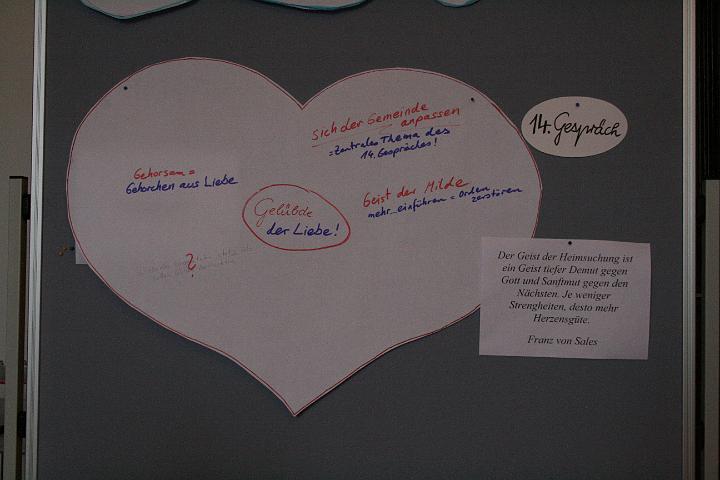 sich der Gemeinde
anpassen
=Zentrales Thema des
14. Gespräches!
14. Gespräch
Gehorsam =
Gehorchen aus Liebe
Geist der Milde
mehr einführen = Orden
zerstören
Gelübde
der Liebe!
?
Der Geist der Heimsuchung ist
ein Geist tiefer Demut gegen
Gott und Sanftmut gegen den
Nächsten. Je weniger
Strengheiten, desto mehr
Herzensgüte.
Franz von Sales